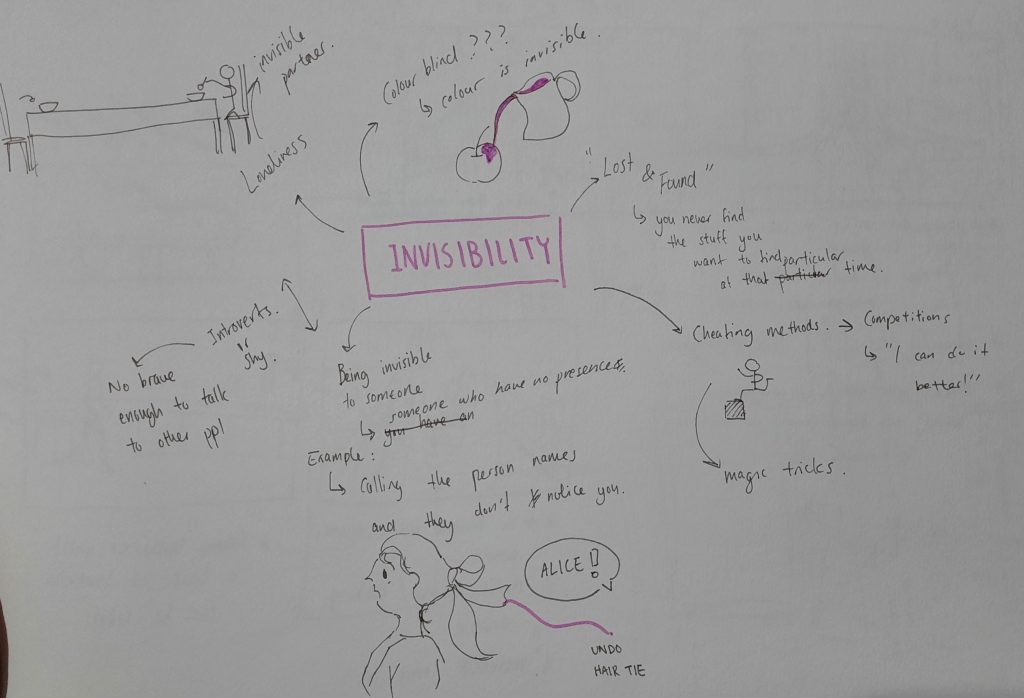 invisible
partner.
Loneliness
Colour blind ???
↳ colour is invisible.
"Lost & Found"
↳ you never find
the stuff you
want to find particular
at that particular time.
INVISIBILITY
Introverts.
shy.
No brave
enough to talk
to other ppl
Being invisible
to someone
someone who have no presences.
↳ you have an
Example:
↳ Calling the person names
and they don't notice you.
ALICE!
UNDO
HAIR TIE
Cheating methods. → Competitions
↳ "I can do it
better!"
magic tricks.